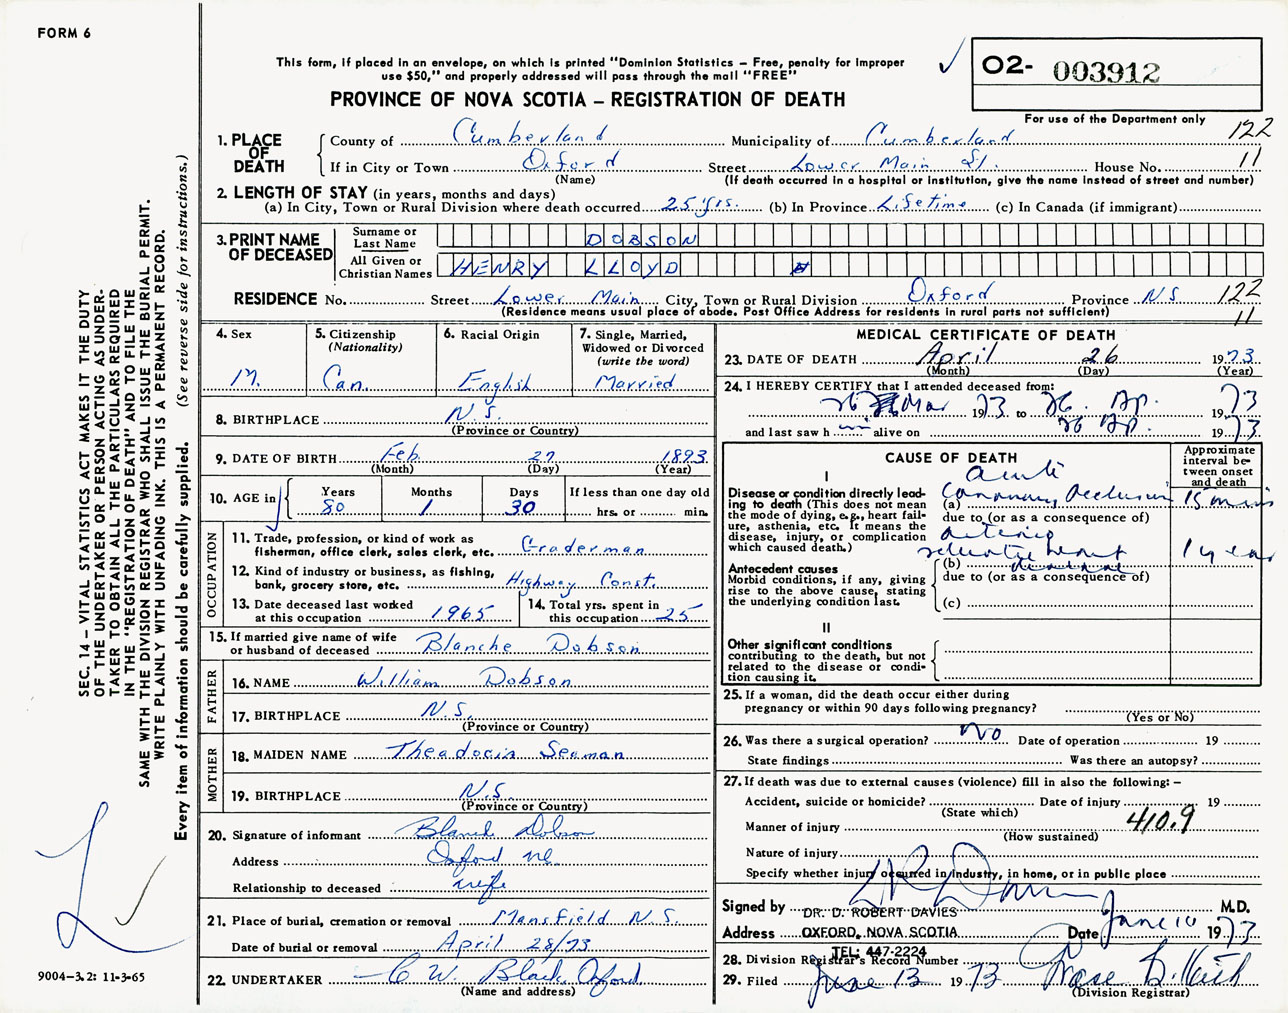 FORM 6
This form, if placed in an envelope, on which is printed "Dominion Statistics – Free, penalty for improper
use $50," and properly addressed will pass through the mail "FREE"
PROVINCE OF NOVA SCOTIA – REGISTRATION OF DEATH
O2- 003912
For use of the Department only
122
11
1. PLACE OF DEATH
County of Cumberland Municipality of Cumberland
If in City or Town Oxford Street Lower Main St. House No.
(Name) (If death occurred in a hospital or institution, give the name instead of street and number)
2. LENGTH OF STAY (in years, months and days)
(a) In City, Town or Rural Division where death occurred 25 yrs. (b) In Province Lifetime (c) In Canada (if immigrant)
3. PRINT NAME OF DECEASED
Surname or Last Name DOBSON
All Given or Christian Names HENRY LLOYD
RESIDENCE No. Street Lower Main City, Town or Rural Division Oxford Province N.S. 122
(Residence means usual place of abode. Post Office Address for residents in rural parts not sufficient) 11
4. Sex M.
5. Citizenship (Nationality) Can.
6. Racial Origin English
7. Single, Married, Widowed or Divorced (write the word) Married
8. BIRTHPLACE N.S.
(Province or Country)
9. DATE OF BIRTH Feb. 27 1893
(Month) (Day) (Year)
10. AGE in Years 80 Months 1 Days 30 If less than one day old hrs. or min.
OCCUPATION
11. Trade, profession, or kind of work as
fisherman, office clerk, sales clerk, etc. Graderman
12. Kind of industry or business, as fishing,
bank, grocery store, etc. Highway Const.
13. Date deceased last worked
at this occupation 1965
14. Total yrs. spent in
this occupation 25
15. If married give name of wife
or husband of deceased Blanche Dobson
FATHER
16. NAME William Dobson
17. BIRTHPLACE N.S.
(Province or Country)
MOTHER
18. MAIDEN NAME Theadocia Seaman
19. BIRTHPLACE N.S.
(Province or Country)
20. Signature of informant Dobson
Address Oxford
Relationship to deceased wife
21. Place of burial, cremation or removal Mansfield N.S.
Date of burial or removal April 28/73
22. UNDERTAKER C W. Black, Oxford
(Name and address)
MEDICAL CERTIFICATE OF DEATH
23. DATE OF DEATH April 26 1973
(Month) (Day) (Year)
24. I HEREBY CERTIFY that I attended deceased from:
26 Mar 1973 to 26. Ap. 1973
and last saw h im alive on 26 Ap. 1973
CAUSE OF DEATH
Approximate interval between onset and death
I
Disease or condition directly leading to death (This does not
mean the mode of dying, e.g., heart failure, asthenia, etc. It means the
disease, injury, or complication
which caused death.)
acute
(a) Coronary Occlusion 15 mins
due to (or as a consequence of)
arterio
sclerotic heart 1 year
(b) disease
due to (or as a consequence of)
Antecedent causes
Morbid conditions, if any, giving
rise to the above cause, stating
the underlying condition last.
(c)
II
Other significant conditions
contributing to the death, but not
related to the disease or condition causing it.
25. If a woman, did the death occur either during
pregnancy or within 90 days following pregnancy?
(Yes or No)
26. Was there a surgical operation? No Date of operation 19
State findings Was there an autopsy?
27. If death was due to external causes (violence) fill in also the following: –
Accident, suicide or homicide? Date of injury 19
(State which)
410.9
Manner of injury
(How sustained)
Nature of injury
Specify whether injury occurred in industry, in home, or in public place
Signed by DR. D. ROBERT DAVIES M.D.
Address OXFORD, NOVA SCOTIA Date June 10 1973
TEL: 447-2224
28. Division Registrar's Record Number
29. Filed June 13 1973
(Division Registrar)
SEC. 14 – VITAL STATISTICS ACT MAKES IT THE DUTY
OF THE UNDERTAKER OR PERSON ACTING AS UNDER-
TAKER TO OBTAIN ALL THE PARTICULARS REQUIRED
IN THE "REGISTRATION OF DEATH" AND TO FILE THE
SAME WITH THE DIVISION REGISTRAR WHO SHALL ISSUE THE BURIAL PERMIT.
WRITE PLAINLY WITH UNFADING INK. THIS IS A PERMANENT RECORD.
Every item of information should be carefully supplied. (See reverse side for instructions.)
9004-3.2: 11-3-65